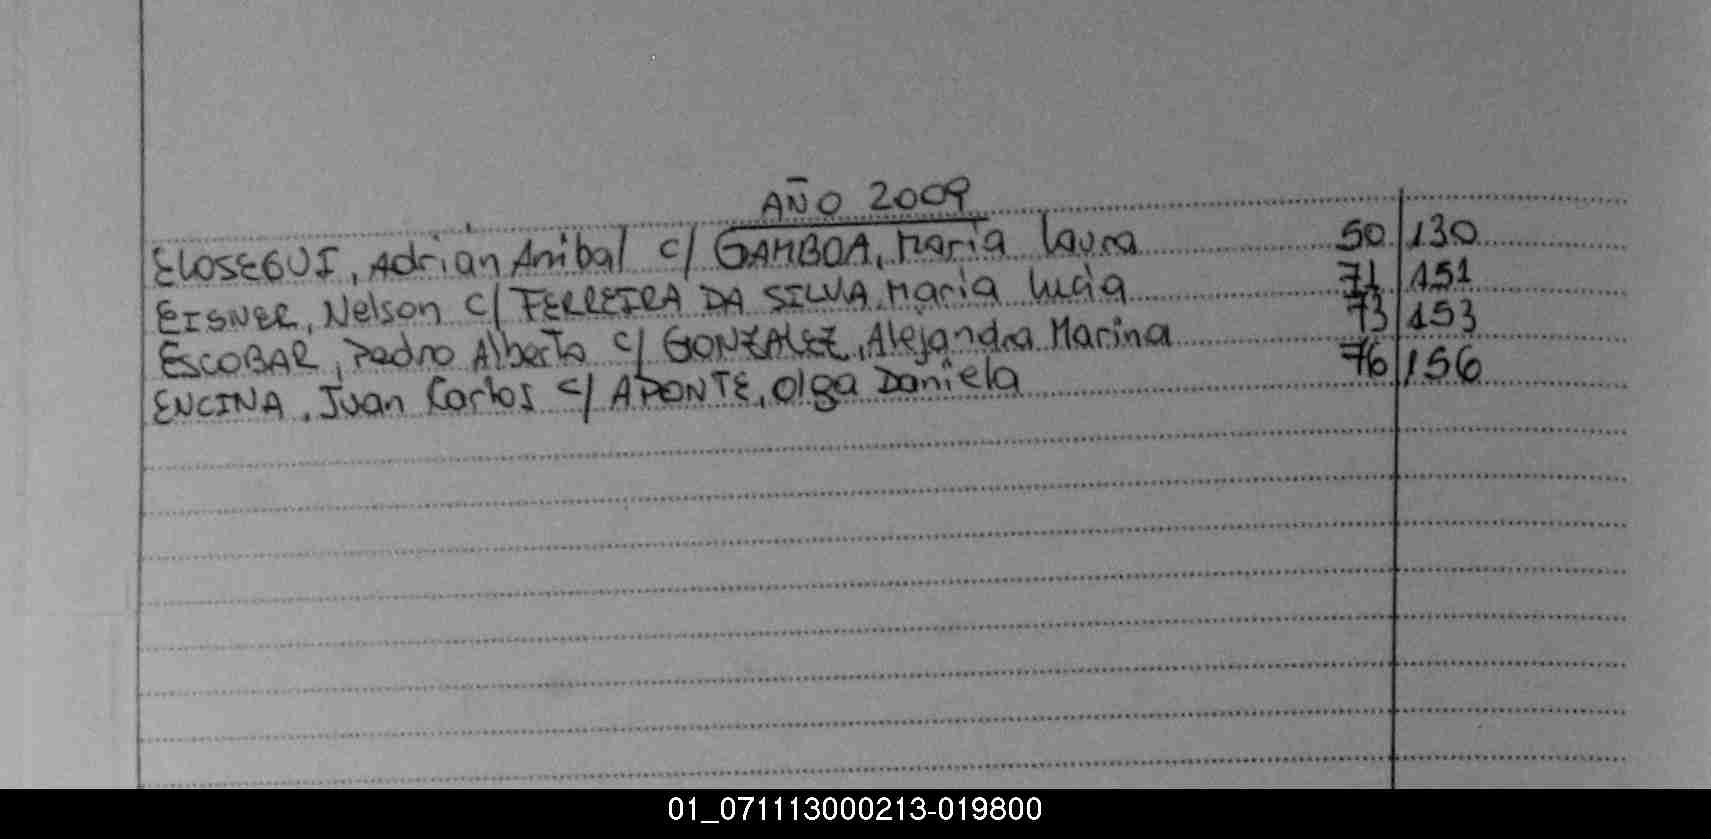 AÑO 2009
ELOSEGUI, Adrián Anibal c/ GAMBOA, María Laura 50 130
EISNER, Nelson c/ FERREIRA DA SILVA, María Lucía 71 151
ESCOBAR, Pedro Alberto c/ GONZALEZ, Alejandra Marina 73 153
ENCINA, Juan Carlos c/ APONTE, Olga Daniela 76 156
01_071113000213-019800